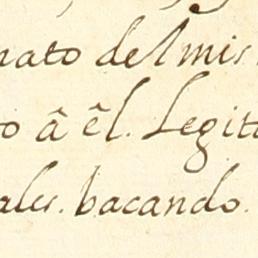 nato del mis
o â êl. Legit
ales. bacando.